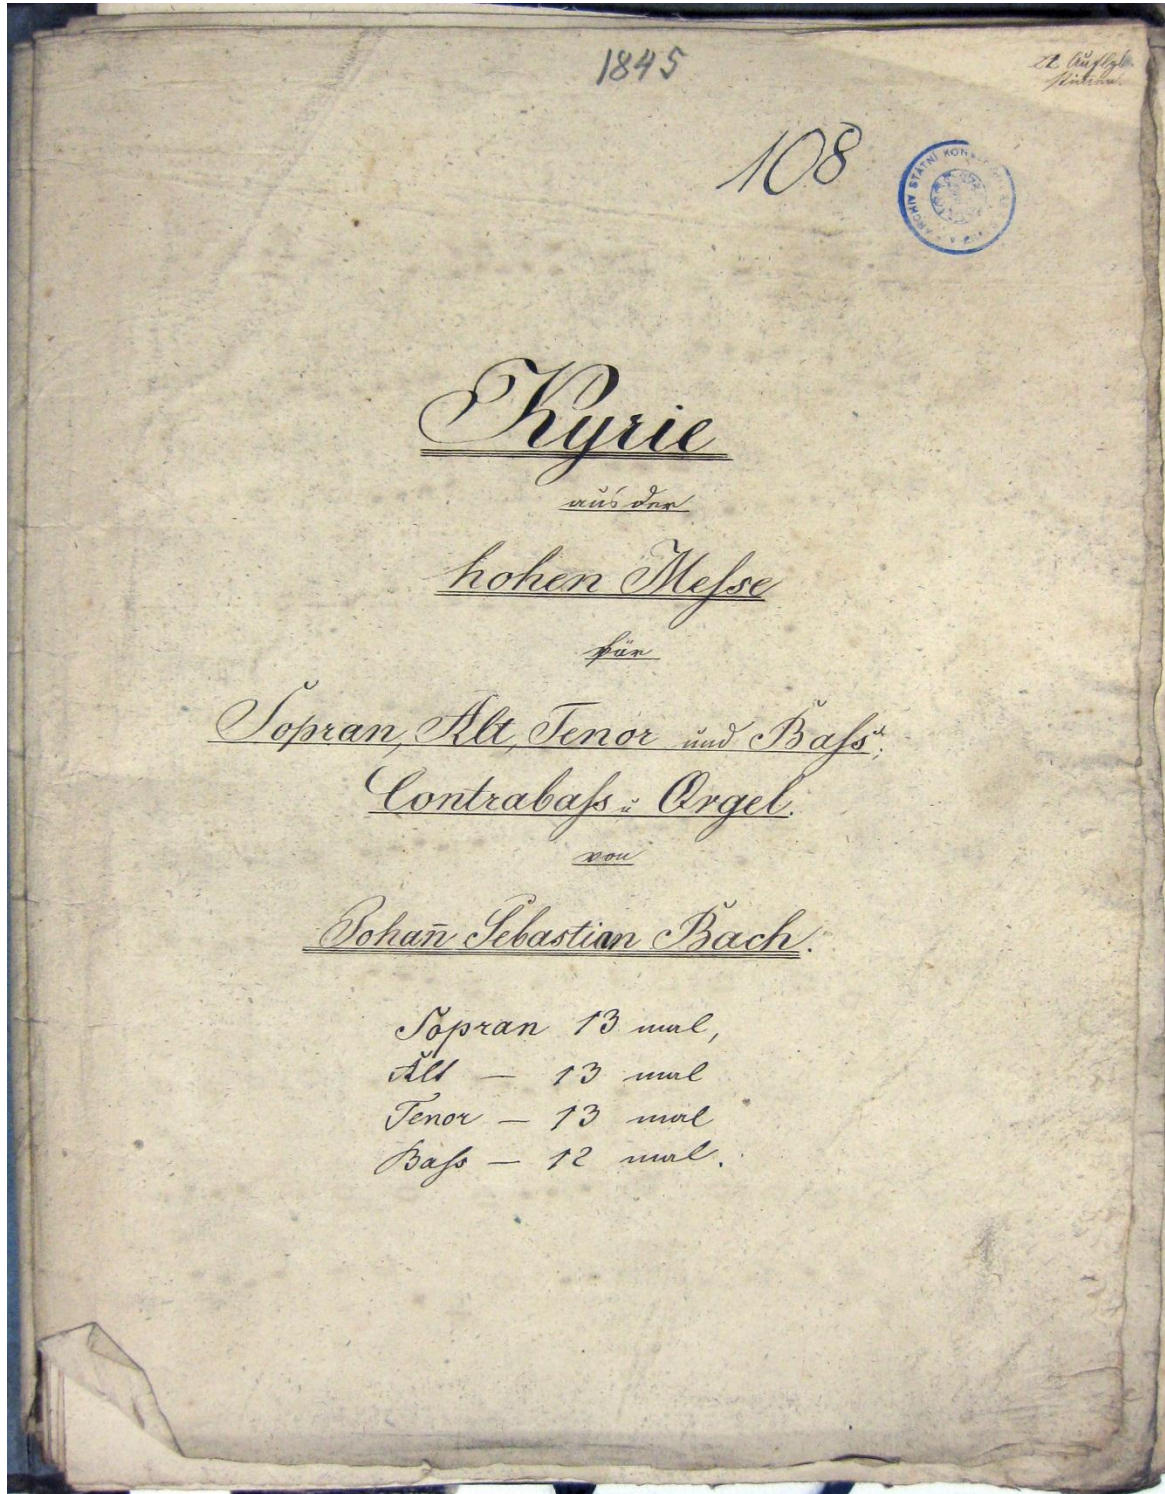 1845
22
108
ARCHIV STÁTNÍ
Kyrie
aus der
hohen Meſse
für
Sopran, Alt, Tenor und Baſs,
Contrabaſs u Orgel.
von
Johan̄ Sebastian Bach.
Sopran 13 mal,
Alt — 13 mal
Tenor — 13 mal
Baſs — 12 mal.